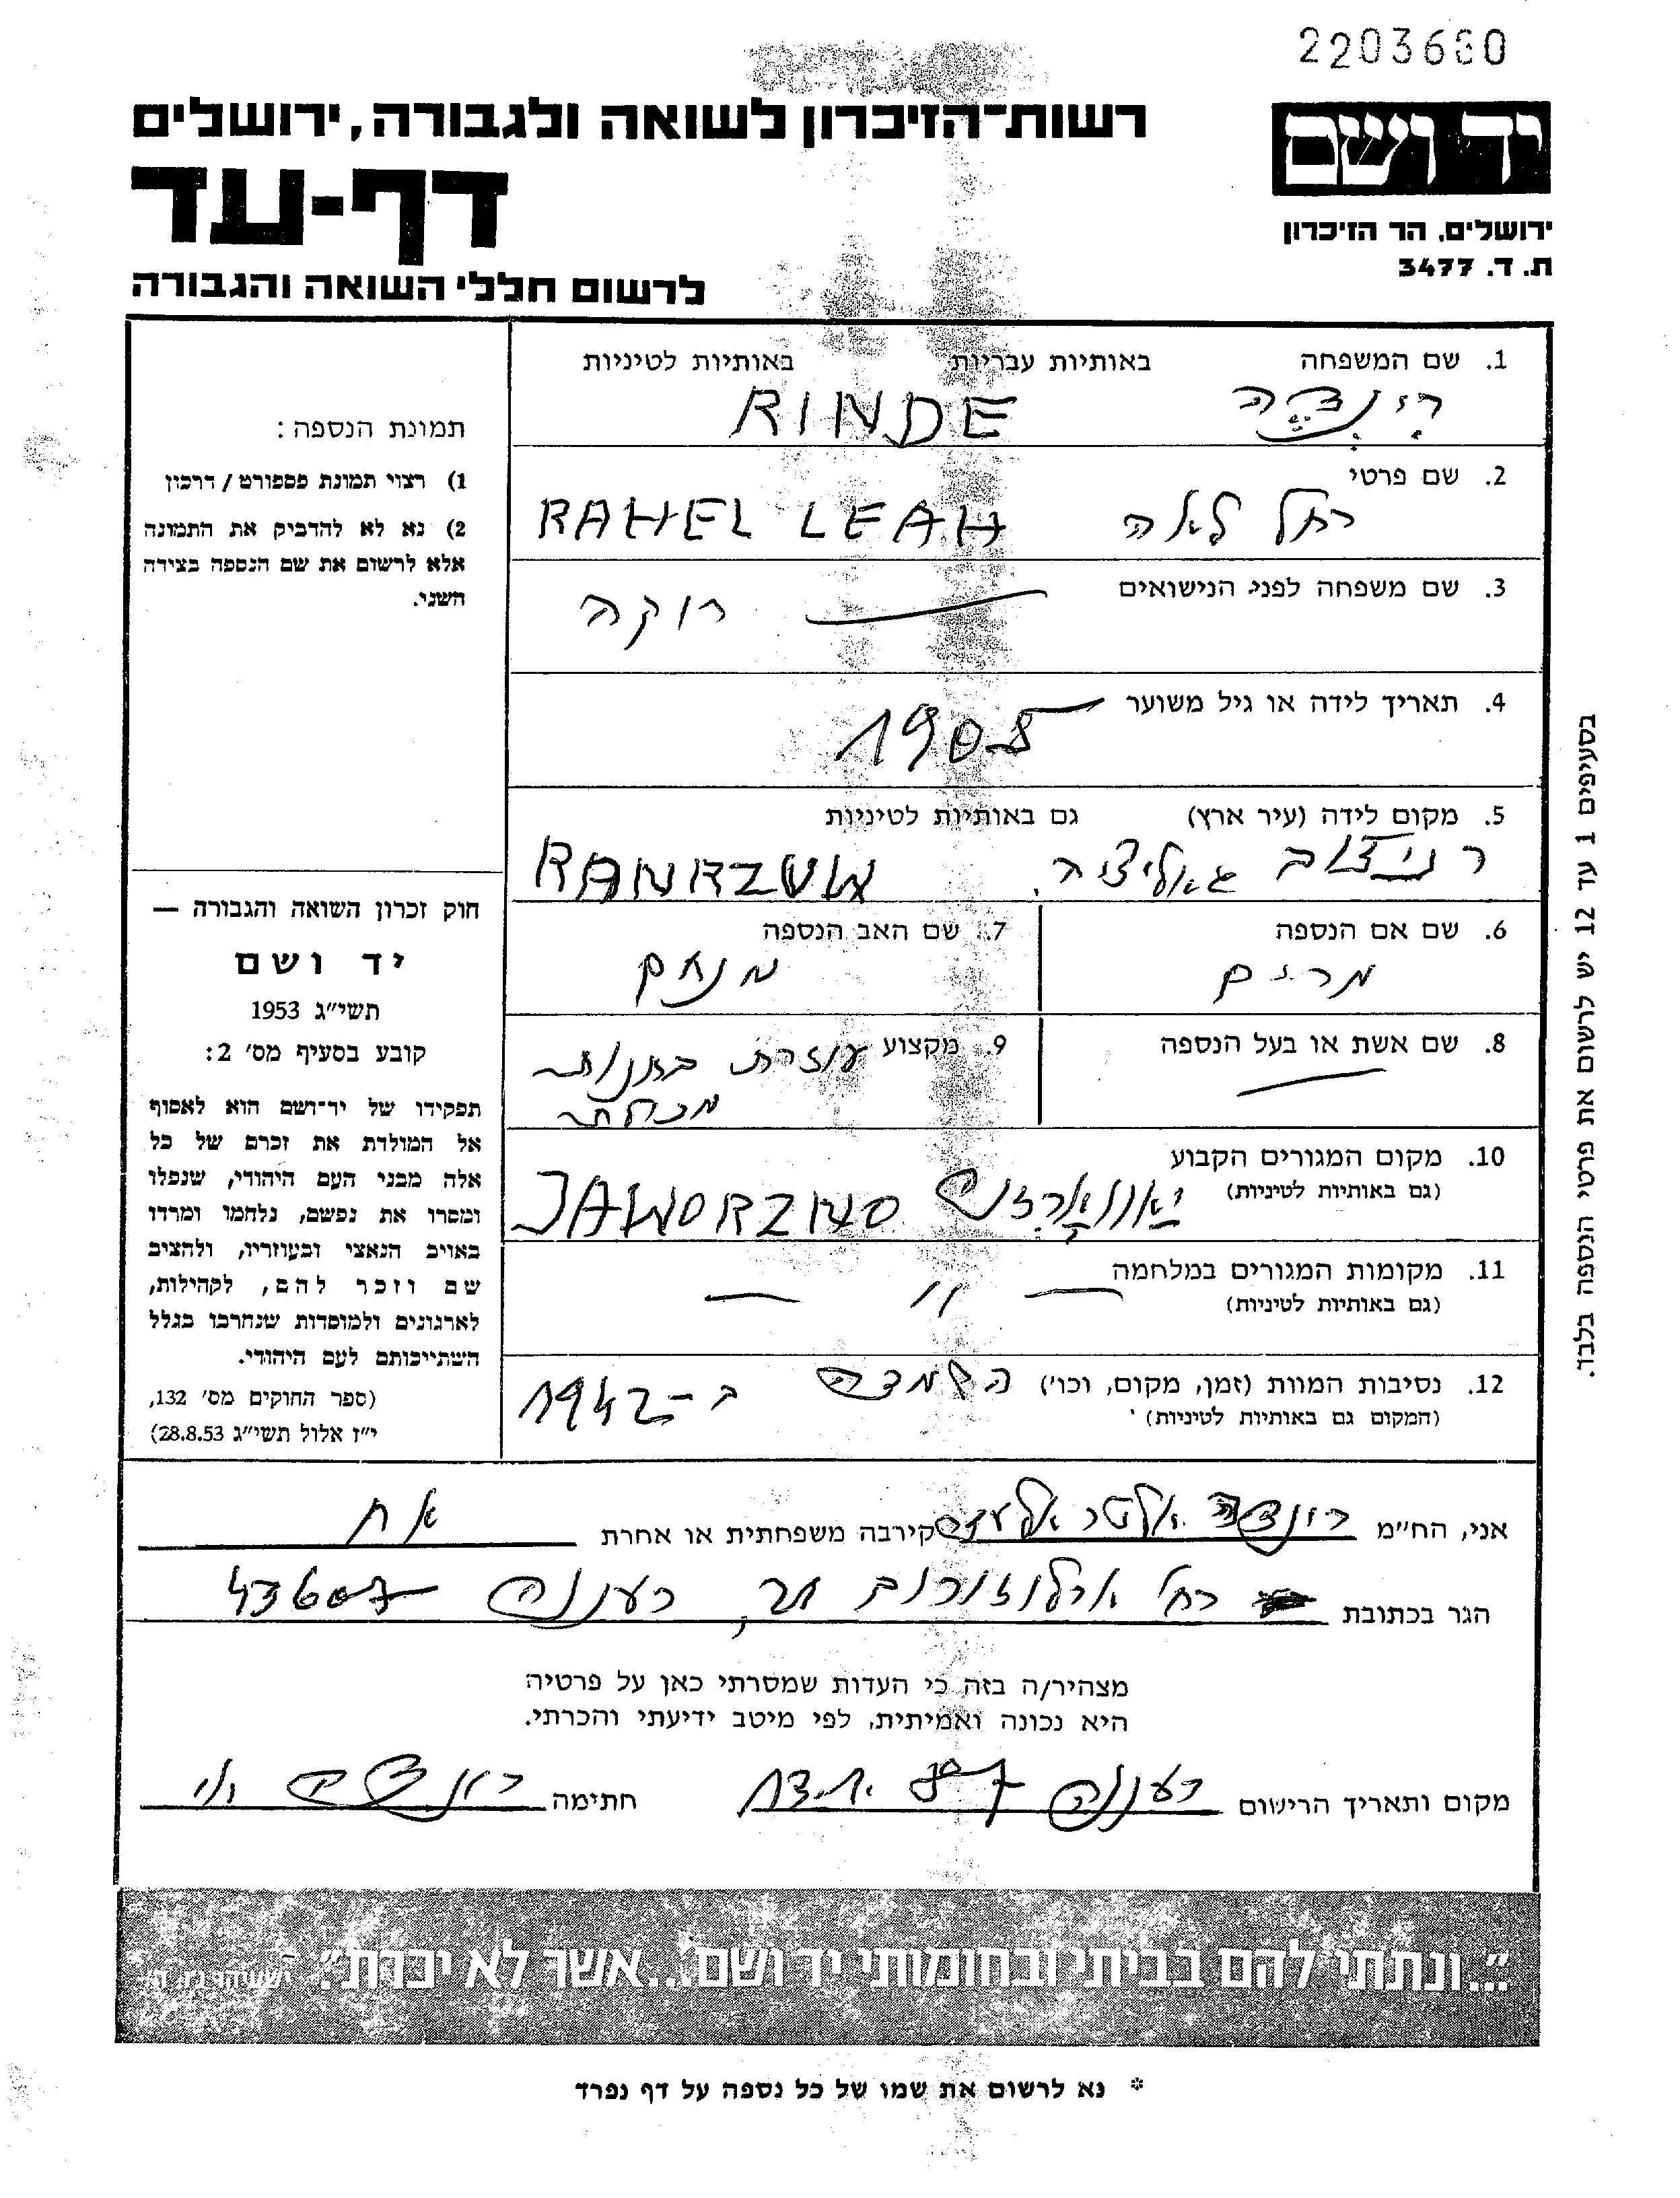 2203660
רשות־הזיכרון לשואה ולגבורה, ירושלים
יד ושם
דף-עד
ירושלים, הר הזיכרון
ת. ד. 3477
לרשום חללי השואה והגבורה
1. שם המשפחה באותיות עבריות באותיות לטיניות
רינדה RINDE
2. שם פרטי
רחל לאה RAHEL LEAH
3. שם משפחה לפני הנישואים
רוקה
4. תאריך לידה או גיל משוער
1905
5. מקום לידה (עיר ארץ) גם באותיות לטיניות
גאליציה
6. שם אם הנספה
מרים
7. שם האב הנספה
מנחם
8. שם אשת או בעל הנספה
9. מקצוע עוזרת
10. מקום המגורים הקבוע
(גם באותיות לטיניות)
JAWORZNO
11. מקומות המגורים במלחמה
(גם באותיות לטיניות)
— 〃 —
12. נסיבות המוות (זמן, מקום, וכו') השמדה ב-1942
(המקום גם באותיות לטיניות)
תמונת הנספה:
1) רצוי תמונת פספורט / דרכון
2) נא לא להדביק את התמונה
אלא לרשום את שם הנספה בצידה
השני.
חוק זכרון השואה והגבורה —
יד ושם
תשי"ג 1953
קובע בסעיף מס' 2:
תפקידו של יד־ושם הוא לאסוף
אל המולדת את זכרם של כל
אלה מבני העם היהודי, שנפלו
ומסרו את נפשם, נלחמו ומרדו
באויב הנאצי ובעוזריו, ולהציב
שם וזכר להם, לקהילות,
לארגונים ולמוסדות שנחרבו בגלל
השתייכותם לעם היהודי.
(ספר החוקים מס' 132,
י"ז אלול תשי"ג 28.8.53)
בסעיפים 1 עד 12 יש לרשום את פרטי הנספה בלבד.
אני, הח"מ רינדה אלטר אלעזר קירבה משפחתית או אחרת אח
הגר בכתובת רח' ארלוזורוב רעננה 43607
מצהיר/ה בזה כי העדות שמסרתי כאן על פרטיה
היא נכונה ואמיתית, לפי מיטב ידיעתי והכרתי.
מקום ותאריך הרישום רעננה חתימה רינדה
"...ונתתי להם בביתי ובחומותי יד ושם...אשר לא יכרת". ישעיהו נו, ה'
* נא לרשום את שמו של כל נספה על דף נפרד